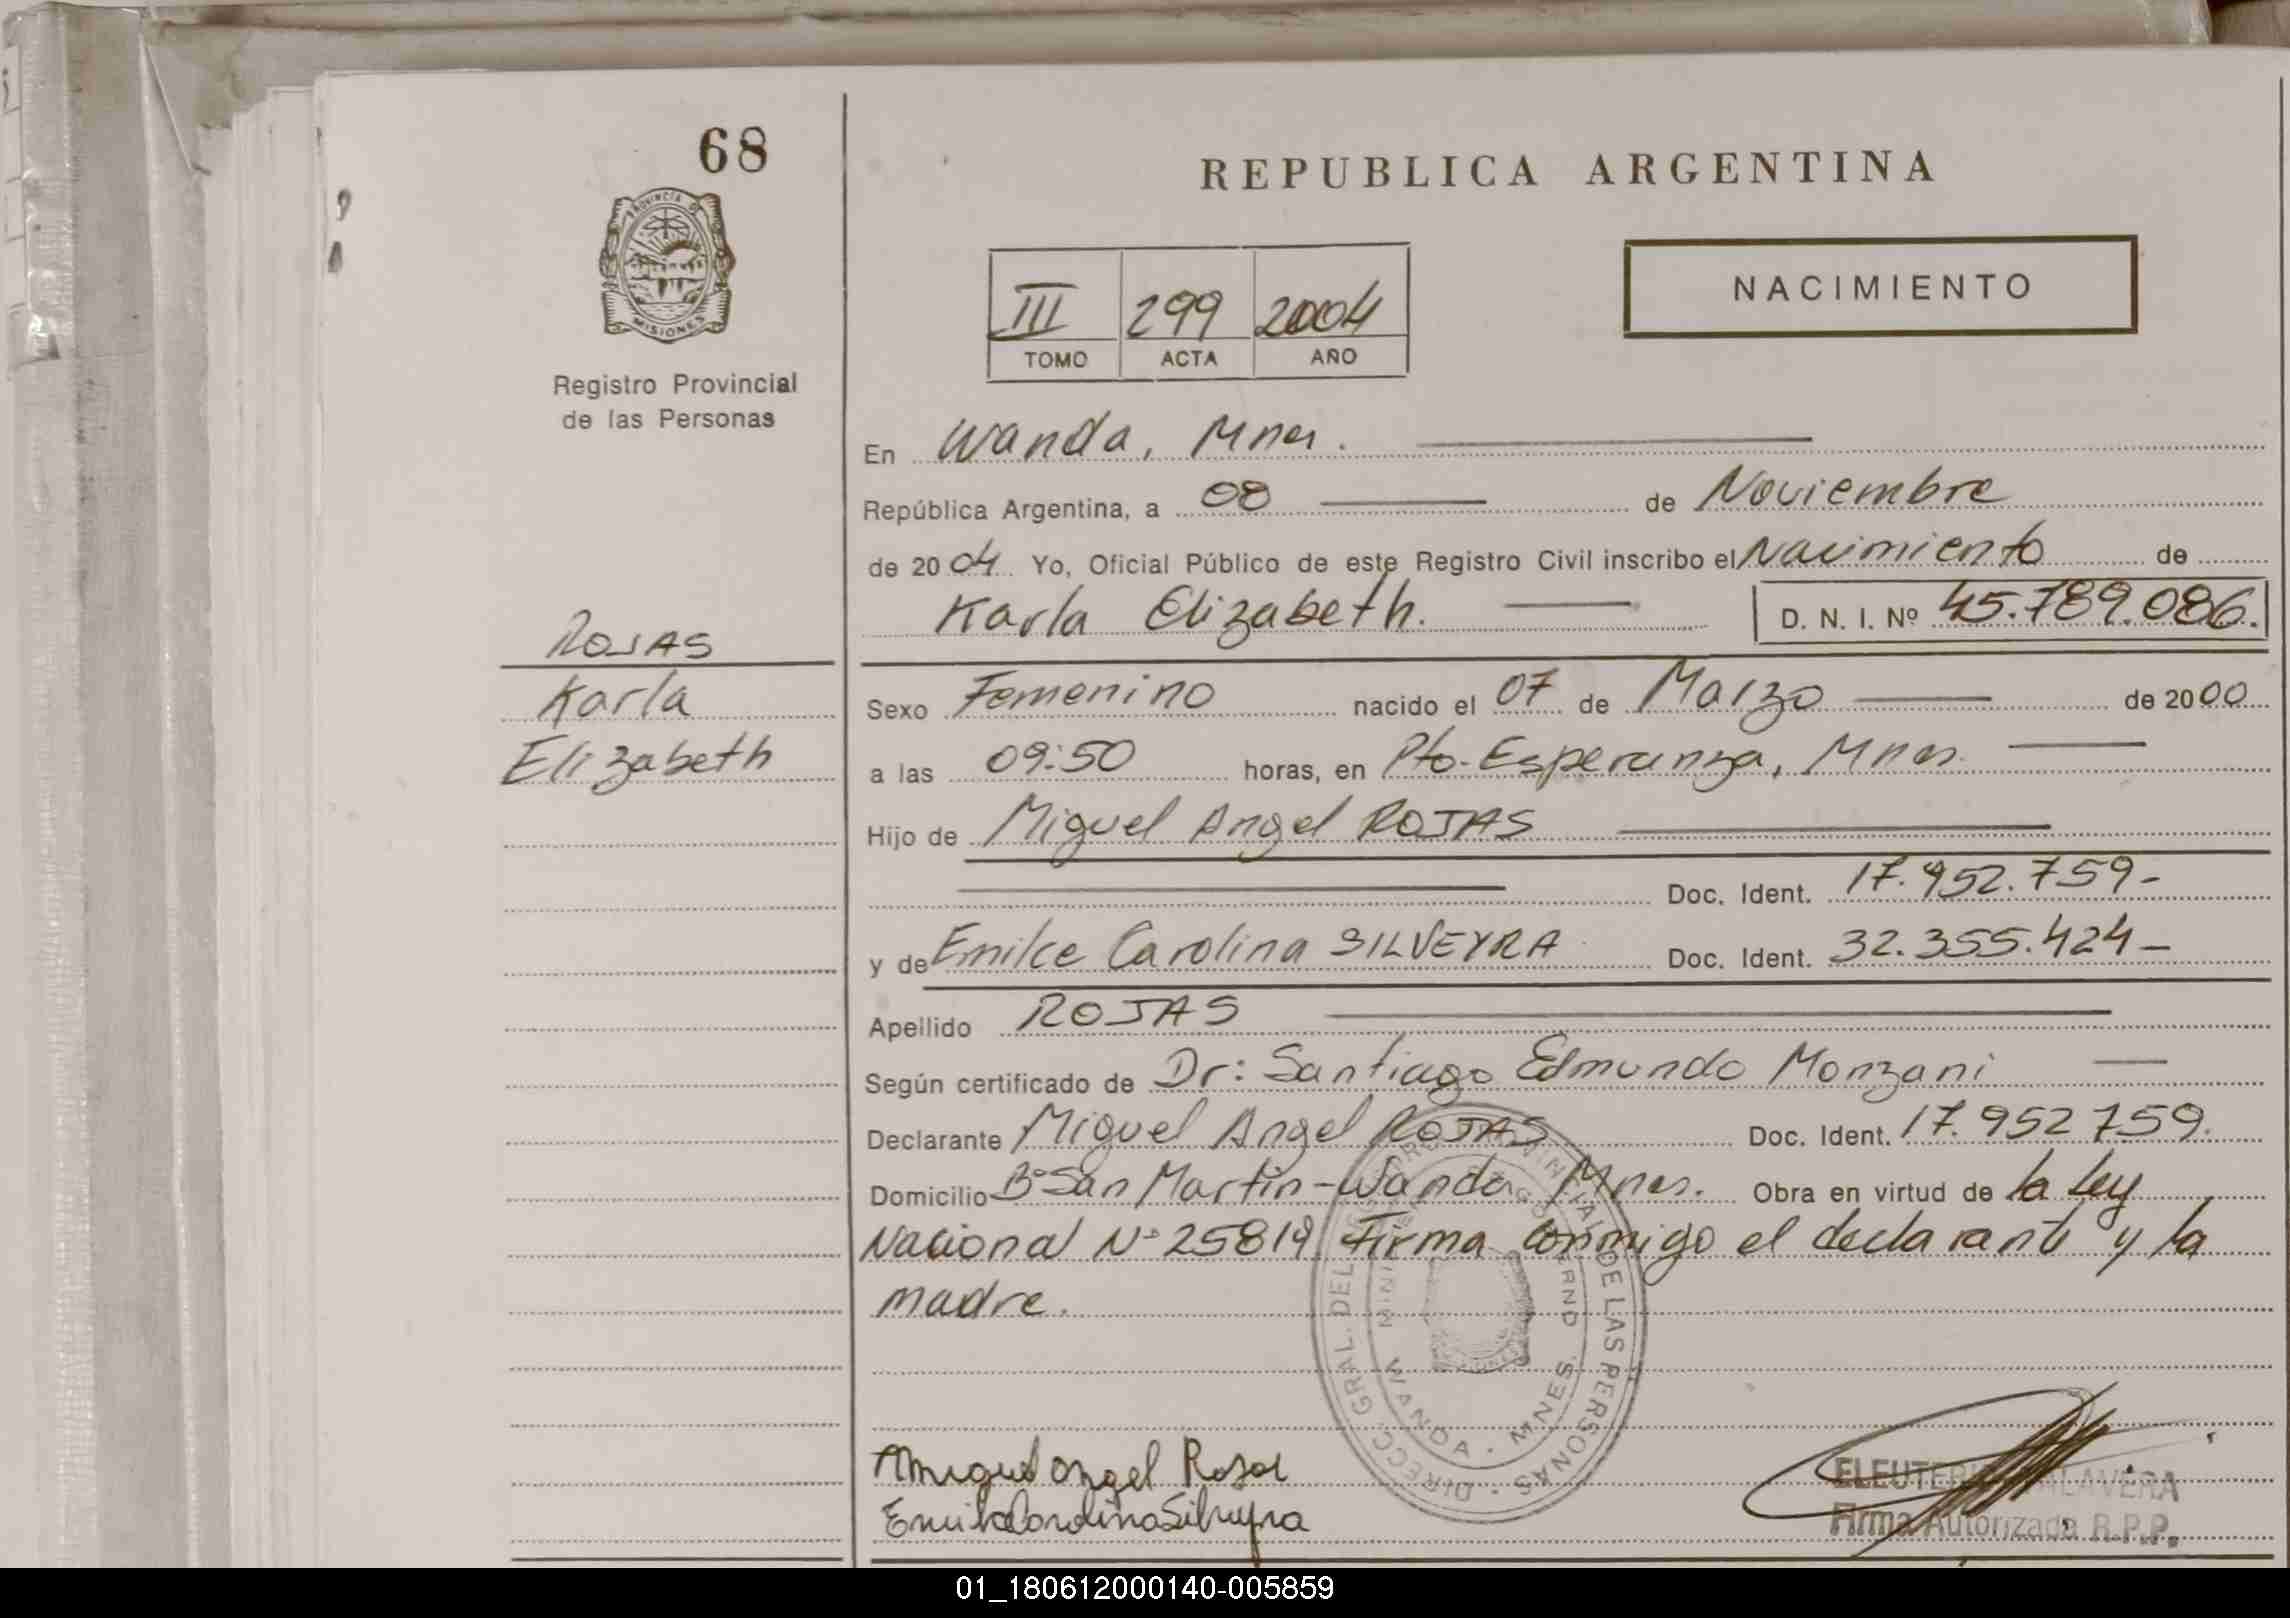 68
REPUBLICA ARGENTINA
PROVINCIA DE
MISIONES
III 299 2004
TOMO ACTA AÑO
NACIMIENTO
Registro Provincial
de las Personas
En Wanda, Mnes.
República Argentina, a 08 de Noviembre
de 2004 Yo, Oficial Público de este Registro Civil inscribo el Nacimiento de
Karla Elizabeth. D. N. I. Nº 45.789.086.
ROJAS
Karla
Elizabeth
Sexo Femenino nacido el 07 de Marzo de 2000
a las 09:50 horas, en Pto. Esperanza, Mnes.
Hijo de Miguel Angel ROJAS
Doc. Ident. 17.952.759-
y de Emilce Carolina SILVEYRA Doc. Ident. 32.355.424-
Apellido ROJAS
Según certificado de Dr: Santiago Edmundo Monzani
Declarante Miguel Angel ROJAS Doc. Ident. 17.952759.
Domicilio Bº San Martin-Wanda Mnes. Obra en virtud de la Ley
Nacional Nº 25819 Firma conmigo el declarante y la
madre.
DIRECC. GRAL. DEL DE LAS PERSONAS
WANDA - MNES.
Miguel Angel Rojas
Emilce Carolina Silveyra
ELEUTERIO
Firma Autorizada R.P.P.
01_180612000140-005859